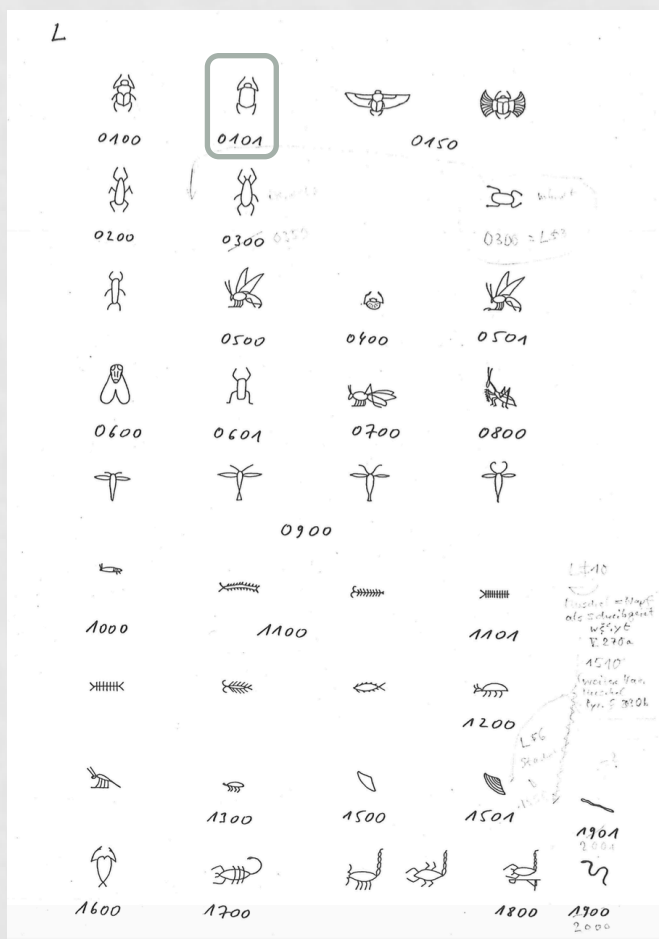 L
0100 0101 0150
0200 0300 0350 0300 = L
0500 0400 0501
0600 0601 0700 0800
0900
1000 1100 1101
als
1510
1200
L56
1300 1500 1501 1901
2001
1600 1700 1800 1900
2000